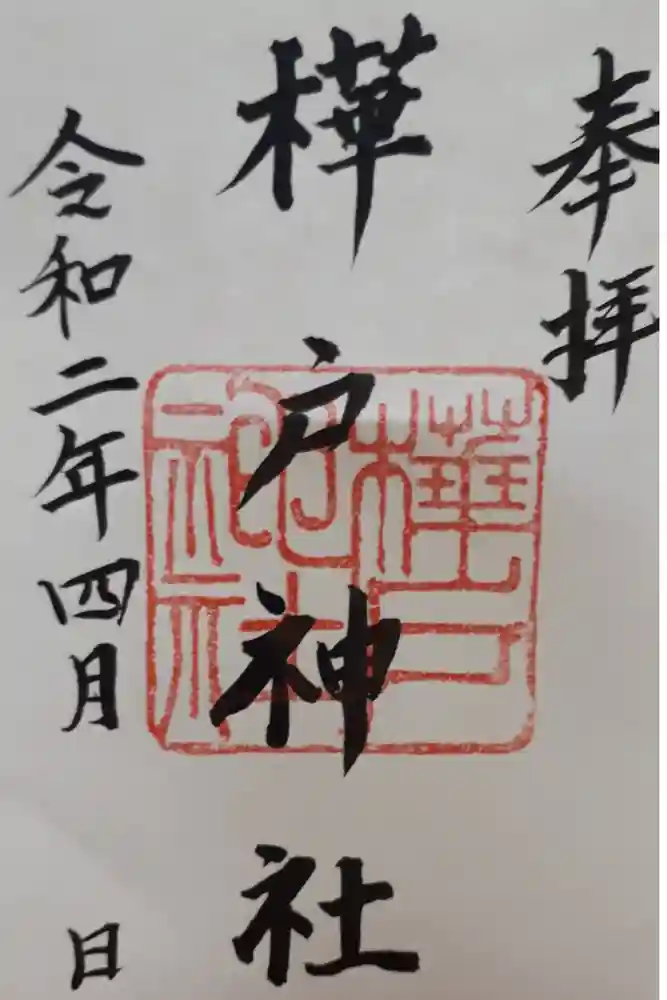 奉拝
樺戸神社
樺戸神社
令和二年四月 日